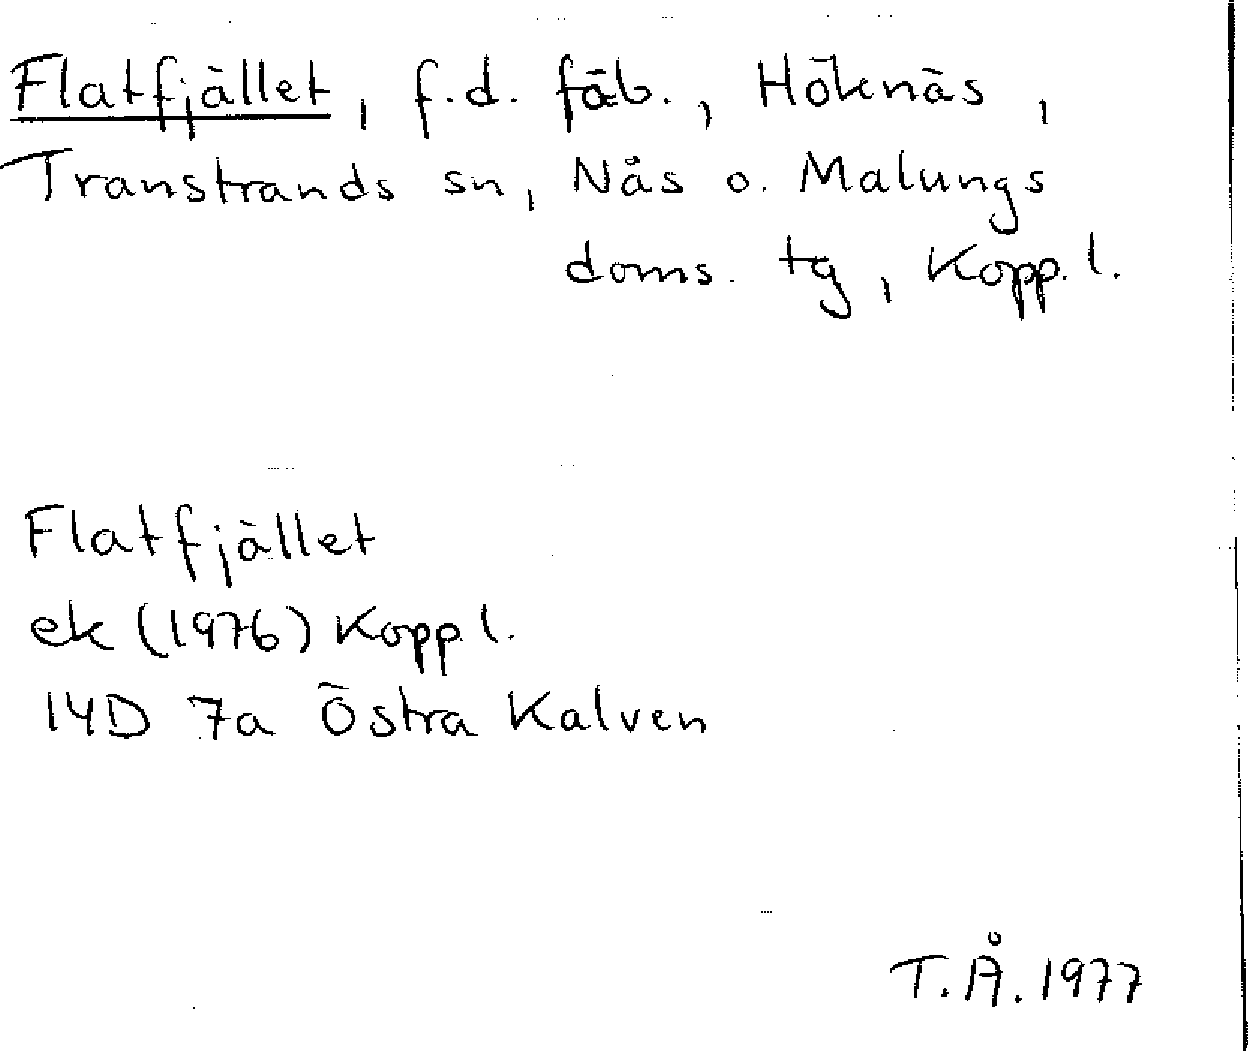 Flatfjället, f.d. fäb., Höknäs,
Transtrands sn, Nås o. Malungs
doms. tg, Kopp. l.
Flatfjället
ek (1976) Kopp l.
14D 7a Östra Kalven
T.Å. 1977